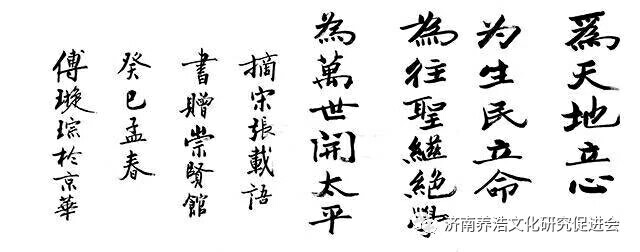 為天地立心
为生民立命
為往聖繼絕學
為萬世開太平
摘宋張載語
書贈崇賢館
癸巳孟春
傅璇琮於京華
济南养浩文化研究促进会